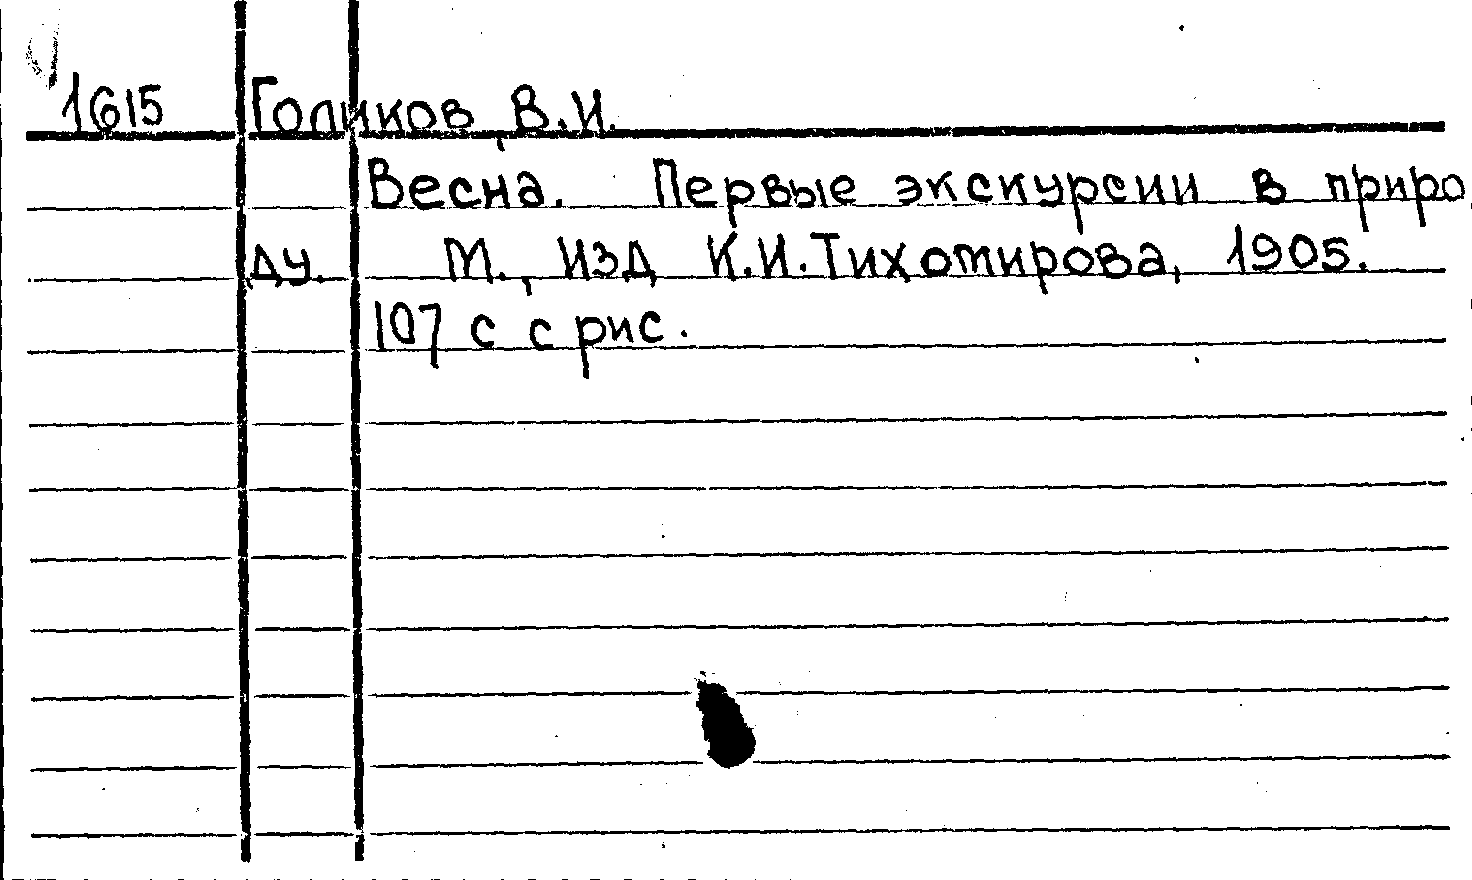 1615 Голиков В.И.
Весна. Первые экскурсии в приро
ду. М., изд К.И.Тихомирова, 1905.
107 с с рис.